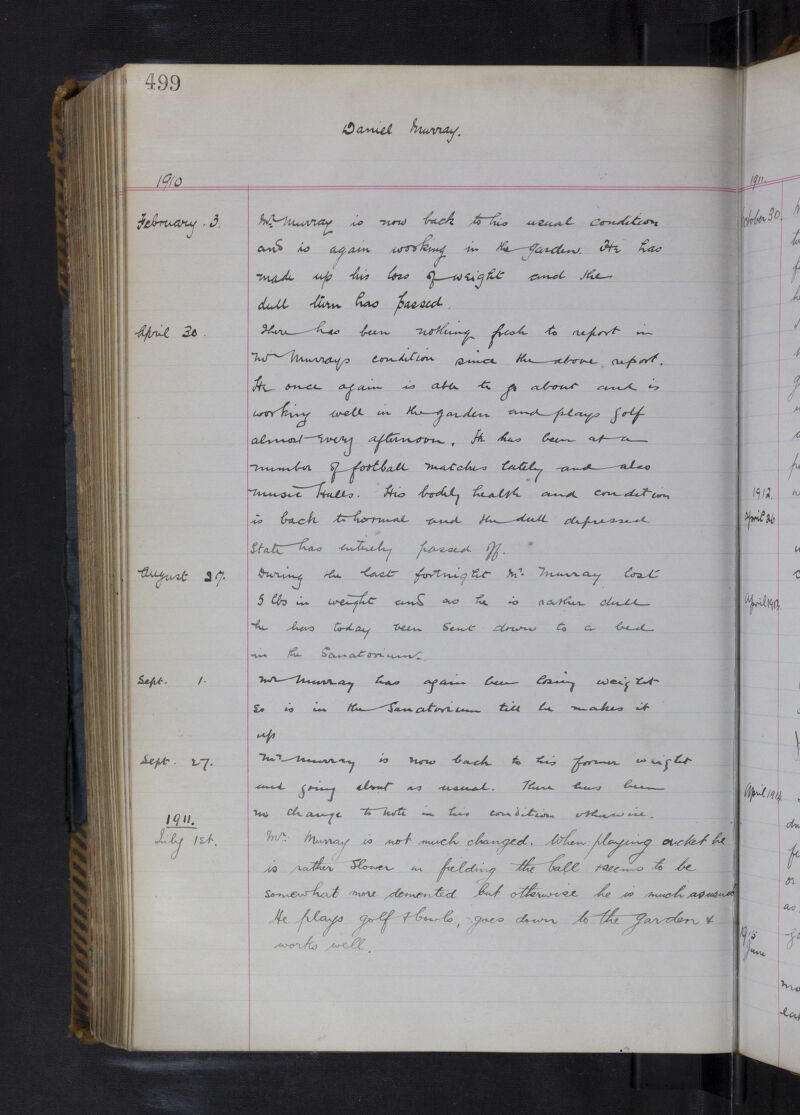 499
Daniel Murray.
1910
February. 3. Mr. Murray is now back to his usual condition
and is again working in the garden. He has
made up his loss of weight and the
dull turn has passed.
April 30. There has been nothing fresh to report in
Mr Murrays condition since the above report.
He once again is able to go about and is
working well in the garden and plays golf
almost every afternoon. He has been at a
number of football matches lately and also
music Halls. His bodily health and condition
is back to normal and the dull depressed
State has entirely passed off.
August 27. During the last fortnight Mr. Murray lost
5 lbs in weight and as he is rather dull
he has today been sent down to a bed
in the Sanatorium.
Sept. 1. Mr Murray has again been losing weight
so is in the Sanatorium till he makes it
up
Sept. 27. Mr Murray is now back to his former weight
and going about as usual. There has been
no change to note in his condition otherwise.
1911.
July 1st. Mr. Murray is not much changed. When playing cricket he
is rather slower in fielding the ball & seems to be
somewhat more demented but otherwise he is much as usual
He plays golf & bowls, goes down to the garden &
works well.
1911.
October 30.
1912.
April 26
April 1913.
April 1914
1915
June